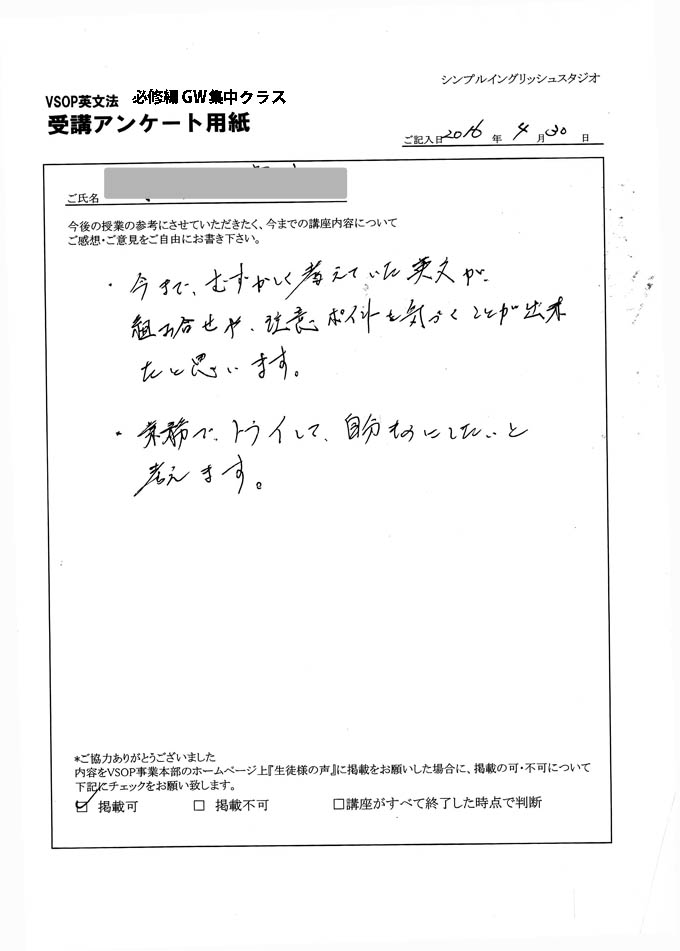 シンプルイングリッシュスタジオ
VSOP英文法 必修編 GW集中クラス
受講アンケート用紙
ご記入日2016年4月30日
ご氏名
今後の授業の参考にさせていただきたく、今までの講座内容について
ご感想・ご意見をご自由にお書き下さい。
・今まで、むずかしく考えていた英文が、
組み合せや、注意ポイントを気づくことが出来
たと思います。
・業務で、トライして、自分ものにしたいと
考えます。
*ご協力ありがとうございました
内容をVSOP事業本部のホームページ上『生徒様の声』に掲載をお願いした場合に、掲載の可・不可について
下記にチェックをお願い致します。
☑ 掲載可 □ 掲載不可 □講座がすべて終了した時点で判断